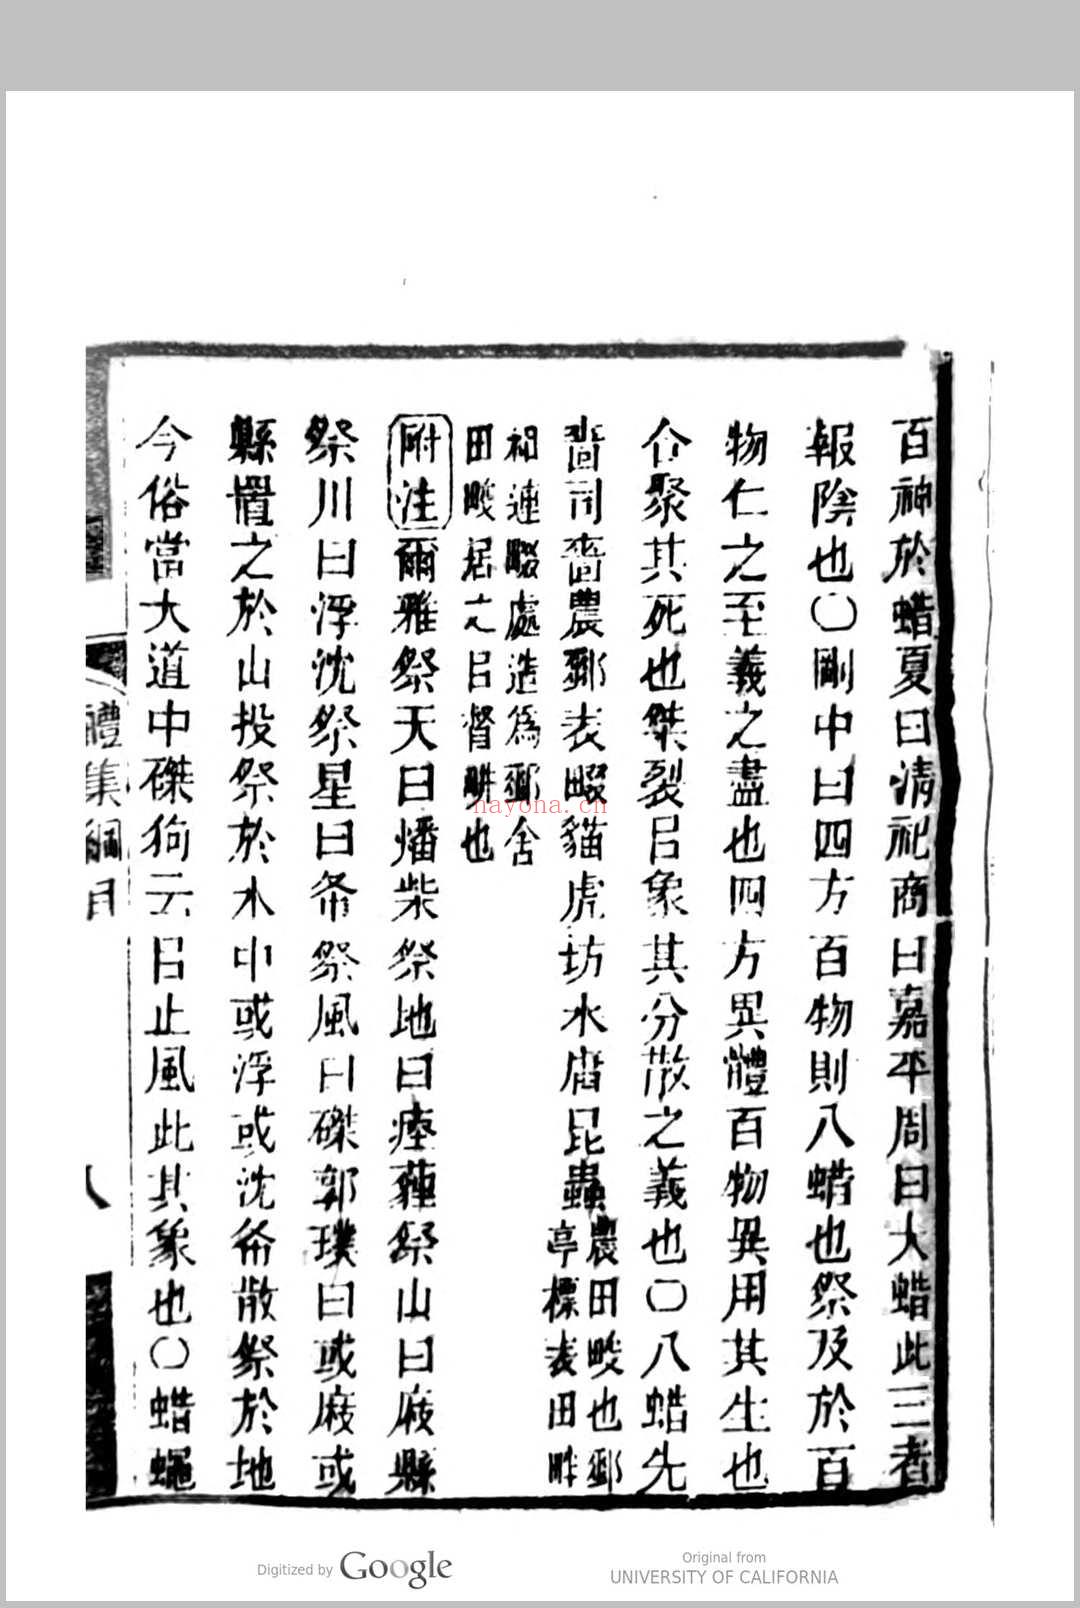 百神於蜡夏曰清祀商曰嘉平周曰大蜡此三者
報陰也〇剛中曰四方百物則八蜡也祭及於百
物仁之至義之盡也四方異體百物異用其生也
合聚其死也磔裂㠯象其分散之義也〇八蜡先
嗇司嗇農郵表畷貓虎坊水庸昆蟲農田畯也郵
亭標表田畔
相連畷處造為郵舍
田畯居之㠯督耕也
附注爾雅祭天曰燔柴祭地曰瘞薶祭山曰庪縣
祭川曰浮沈祭星曰布祭風曰磔郭璞曰或庪或
縣置之於山投祭於水中或浮或沈布散祭於地
今俗當大道中磔狗云㠯止風此其象也〇蜡蠅
禮集綱目
八
nayona.cn
Digitized by Google
Original from
UNIVERSITY OF CALIFORNIA